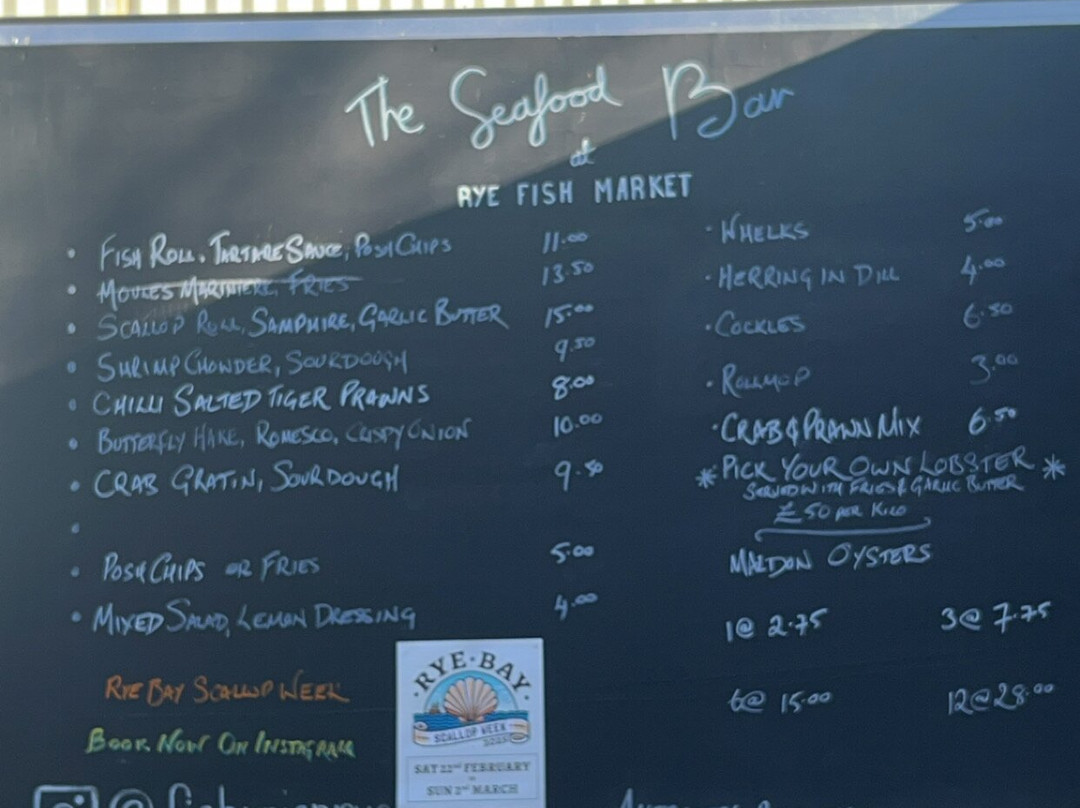 The Seafood Bar
at
RYE FISH MARKET
• FISH ROLL, TARTARE SAUCE, POSH CHIPS 11.00
• MOULES MARINIERE, FRIES 13.50
• SCALLOP ROLL, SAMPHIRE, GARLIC BUTTER 15.00
• SHRIMP CHOWDER, SOURDOUGH 9.50
• CHILLI SALTED TIGER PRAWNS 8.00
• BUTTERFLY HAKE, ROMESCO, CRISPY ONION 10.00
• CRAB GRATIN, SOURDOUGH 9.50
•
• POSH CHIPS OR FRIES 5.00
• MIXED SALAD, LEMON DRESSING 4.00
RYE BAY SCALLOP WEEK
BOOK NOW ON INSTAGRAM
• WHELKS 5.00
• HERRING IN DILL 4.00
• COCKLES 6.50
• ROLLMOP 3.00
• CRAB & PRAWN MIX 6.50
* PICK YOUR OWN LOBSTER *
SERVED WITH FRIES & GARLIC BUTTER
£50 PER KILO
MALDON OYSTERS
1@ 2.75 3@ 7.75
6@ 15.00 12@ 28.00
RYE·BAY
SCALLOP WEEK
2025
SAT 22ND FEBRUARY
SUN 2ND MARCH